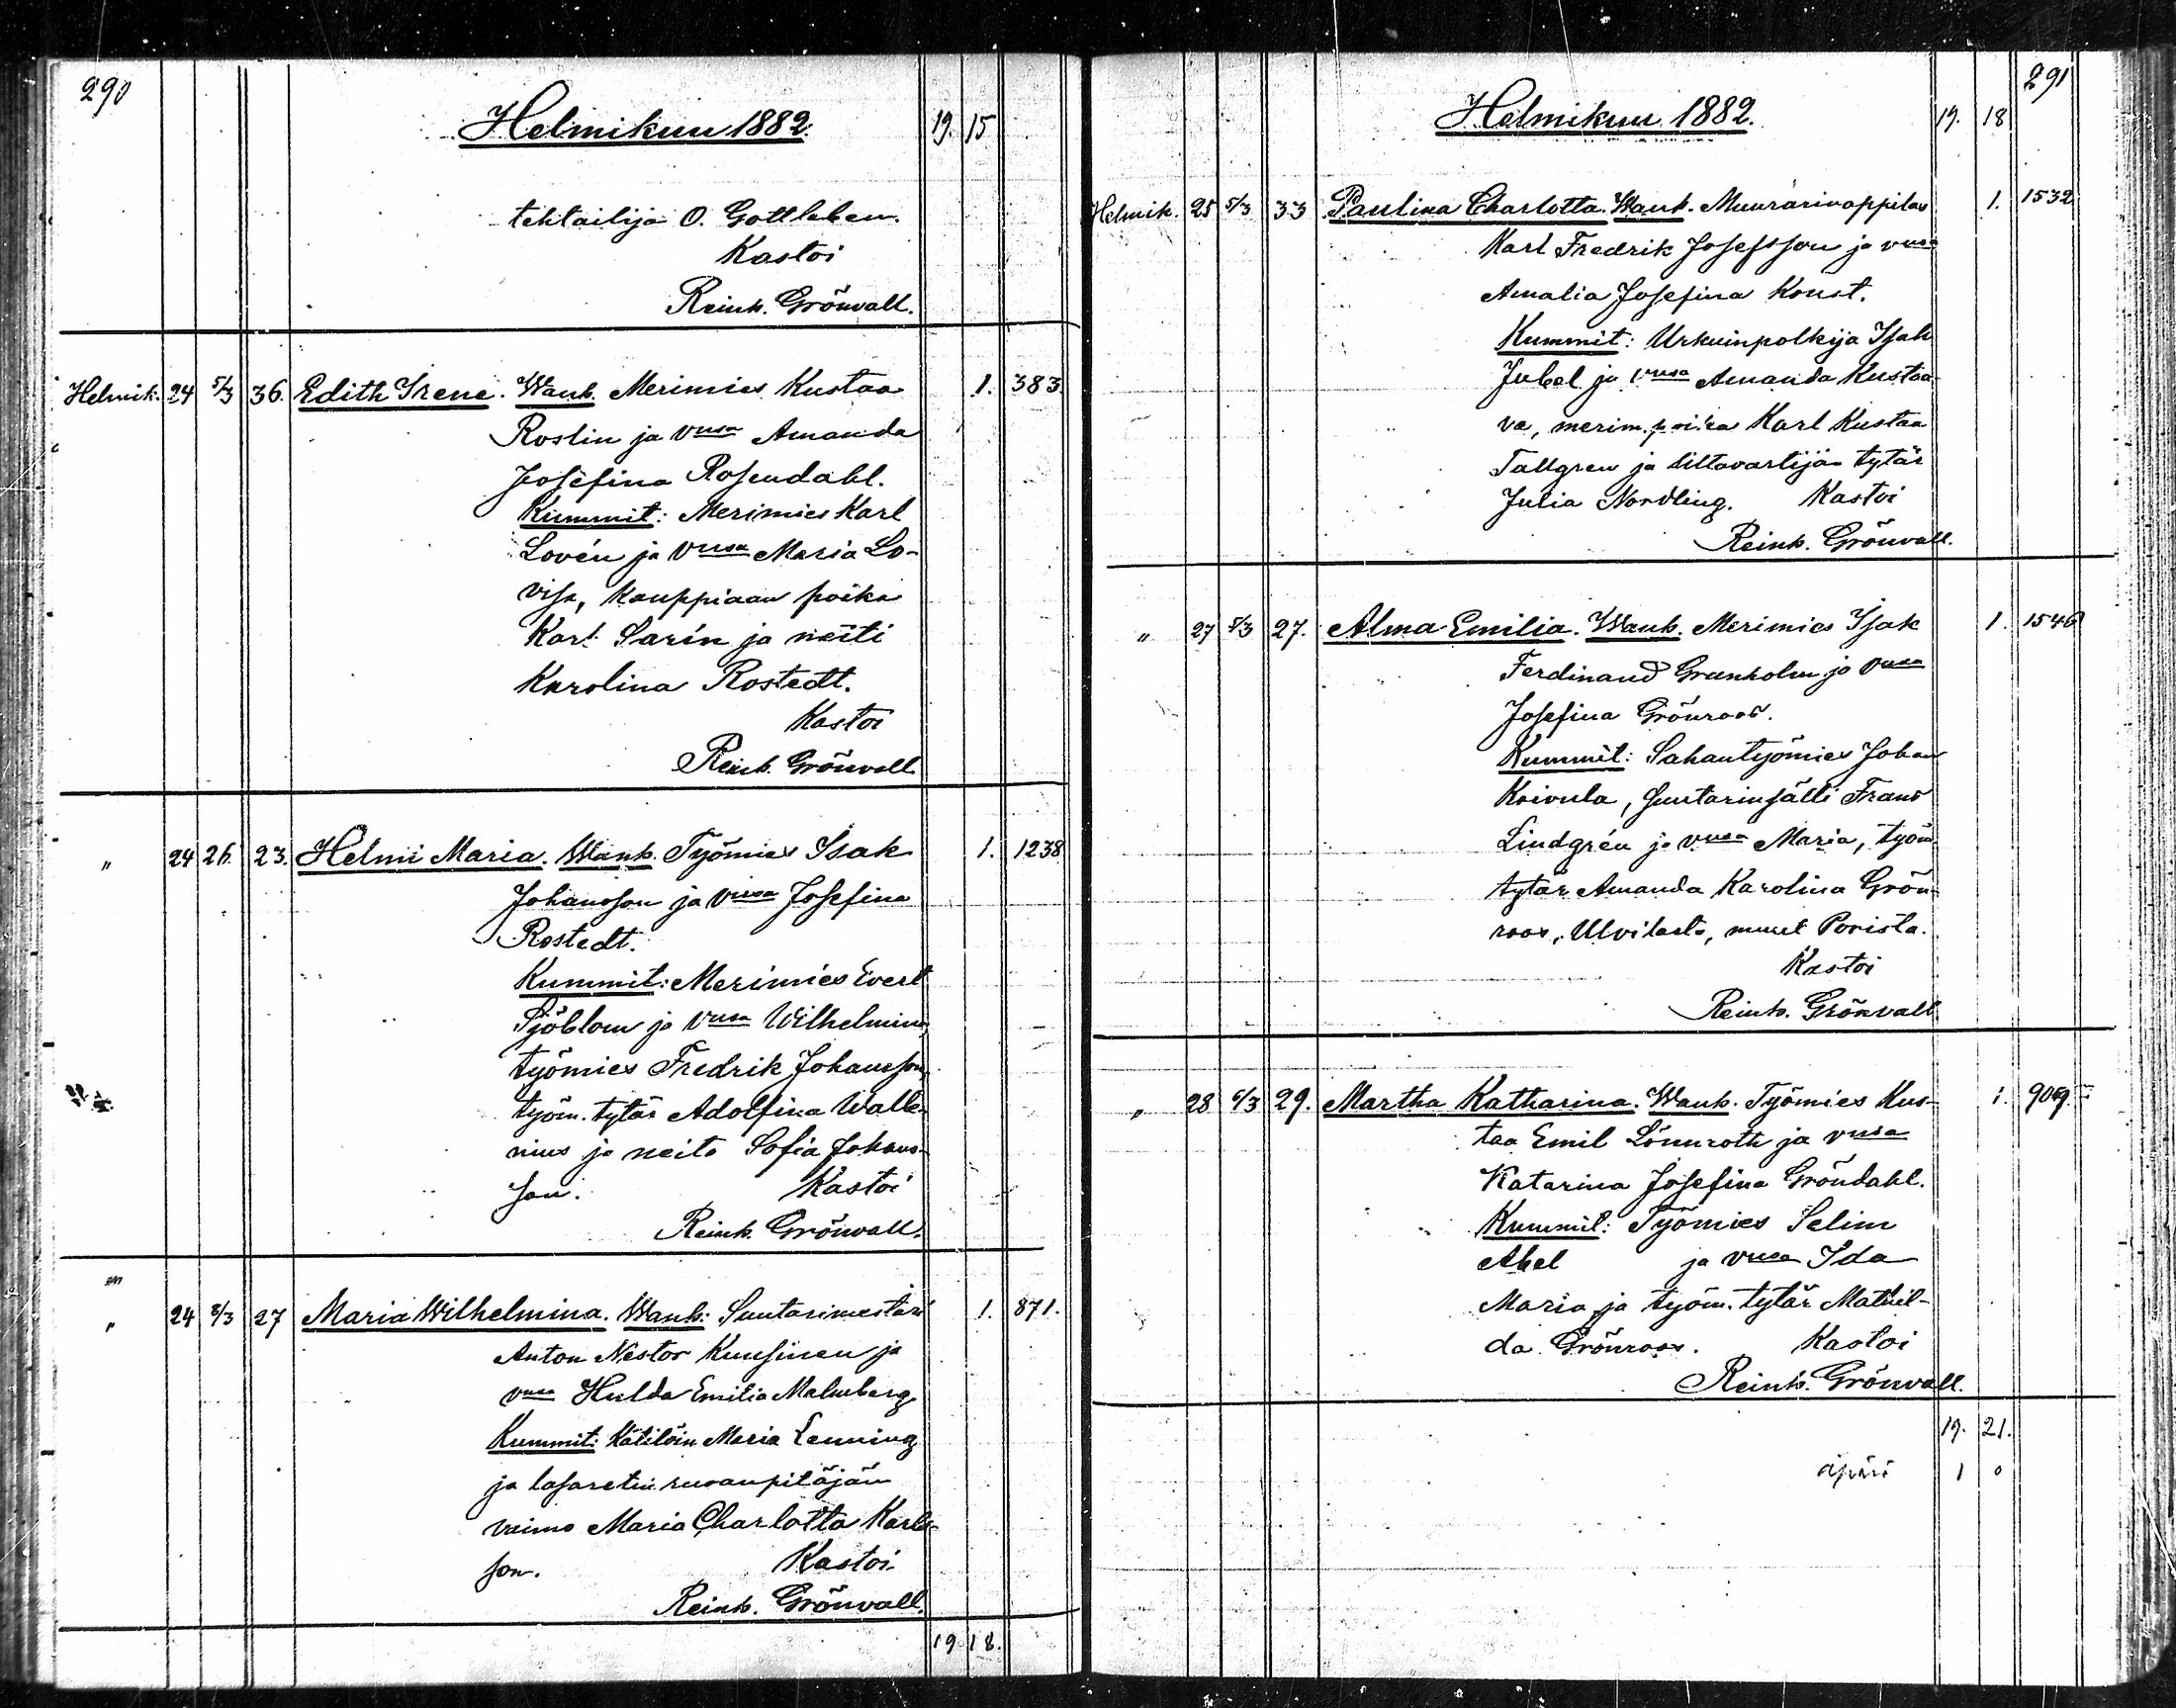 290
Helmikuu 1882.
19. 15
tehtailija O. Gottleben.
Kastoi
Reinh. Grönvall.
Helmik. 24 5/3 36. Edith Irene. Wanh. Merimies Kustaa 1. 383.
Roslin ja vmsa Amanda
Josefina Rosendahl.
Kummit: Merimies Karl
Lovén ja vmsa Maria Lo-
visa, kauppiaan poika
Karl Sarin ja neiti
Karolina Rostedt.
Kastoi
Reinh. Grönvall.
" 24 26. 23. Helmi Maria. Wanh. Työmies Isak 1. 1238
Johansson ja vmsa Josefina
Rostedt.
Kummit: Merimies Evert
Sjöblom ja vmsa Wilhelmina,
työmies Fredrik Johansson,
työm. tytär Adolfina Walle-
nius ja neito Sofia Johans-
son. Kastoi
Reinh. Grönvall.
" 24 8/3 27 Maria Wilhelmina. Wanh: Suutarimestari 1. 871.
Anton Nestor Kuusinen ja
vmsa Hulda Emilia Malmberg
Kummit: Kätilöin Maria Lenning
ja lasaretin ruoanpitäjän
vaimo Maria Charlotta Karls-
son. Kastoi
Reinh. Grönvall.
19 18.
291
Helmikuu 1882.
19. 18
Helmik. 25 5/3 33 Paulina Charlotta. Wanh. Muurarinoppilas 1. 1532
Karl Fredrik Josefsson ja vmsa
Amalia Josefina Konst.
Kummit: Urkuinpolkija Isak
Jubel ja vmsa Amanda Kustaa-
va, merim. poika Karl Kustaa
Tallgren ja siltavartijan tytär
Julia Nordling. Kastoi
Reinh. Grönvall.
" 27 5/3 27. Alma Emilia. Wanh. Merimies Isak 1. 1546
Ferdinand Granholm ja vmsa
Josefina Grönroos.
Kummit: Sahantyömies Johan
Koivula, suutarinsälli Frans
Lindgrén ja vmsa Maria, työm.
tytär Amanda Karolina Grön-
roos, Ulvilasta, muut Porista.
Kastoi
Reinh. Grönvall.
" 28 6/3 29. Martha Katharina. Wanh. Työmies Kus- 1. 909.
taa Emil Lönnroth ja vmsa
Katarina Josefina Gröndahl.
Kummit: Työmies Selim
Abel ja vmsa Ida
Maria ja työm. tytär Mathil-
da Grönroos. Kastoi
Reinh. Grönvall.
19. 21.
äpäriä 1 0